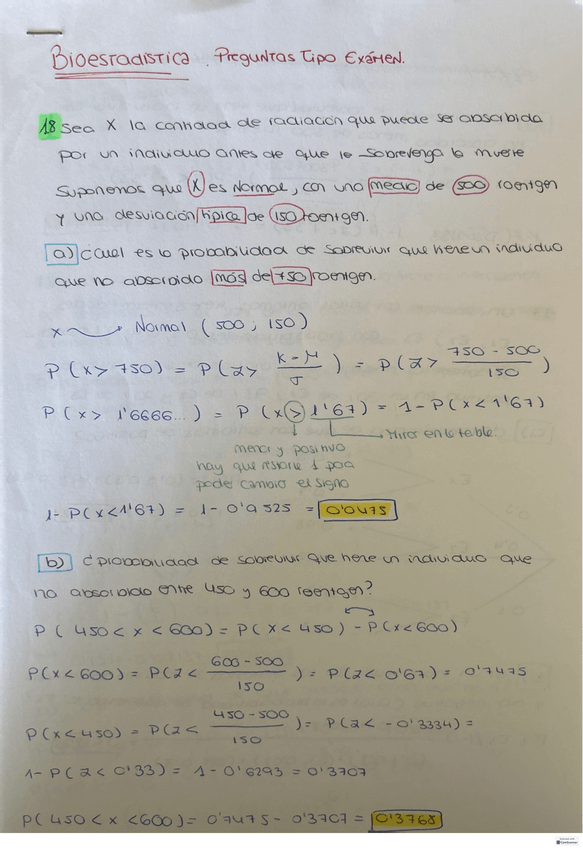 Bioestadística. Preguntas Tipo Exámen.
18 Sea X la cantidad de radiación que puede ser absorbida
por un individuo antes de que le sobrevenga la muerte
Suponemos que X es Normal, con una media de 500 roentgen
y una desviación típica de 150 roentgen.
a) ¿Cual es la probabilidad de sobrevivir que tiene un individuo
que no absorbido más de 750 roentgen.
X → Normal (500, 150)
P(x > 750) = P(z > (K-μ)/σ) = P(z > (750-500)/150)
P(x > 1'6666...) = P(x > 1'67) = 1 - P(x < 1'67)
Mirar en la tabla
menor y positivo
hay que restarle 1 para
poder cambio el signo
1 - P(x < 1'67) = 1 - 0'9525 = 0'0475
b) ¿probabilidad de sobrevivir que tiene un individuo que
no absorbido entre 450 y 600 roentgen?
P(450 < x < 600) = P(x < 450) - P(x < 600)
P(x < 600) = P(z < (600-500)/150) = P(z < 0'67) = 0'7475
P(x < 450) = P(z < (450-500)/150) = P(z < -0'3334) =
1 - P(z < 0'33) = 1 - 0'6293 = 0'3707
P(450 < x < 600) = 0'7475 - 0'3707 = 0'3768